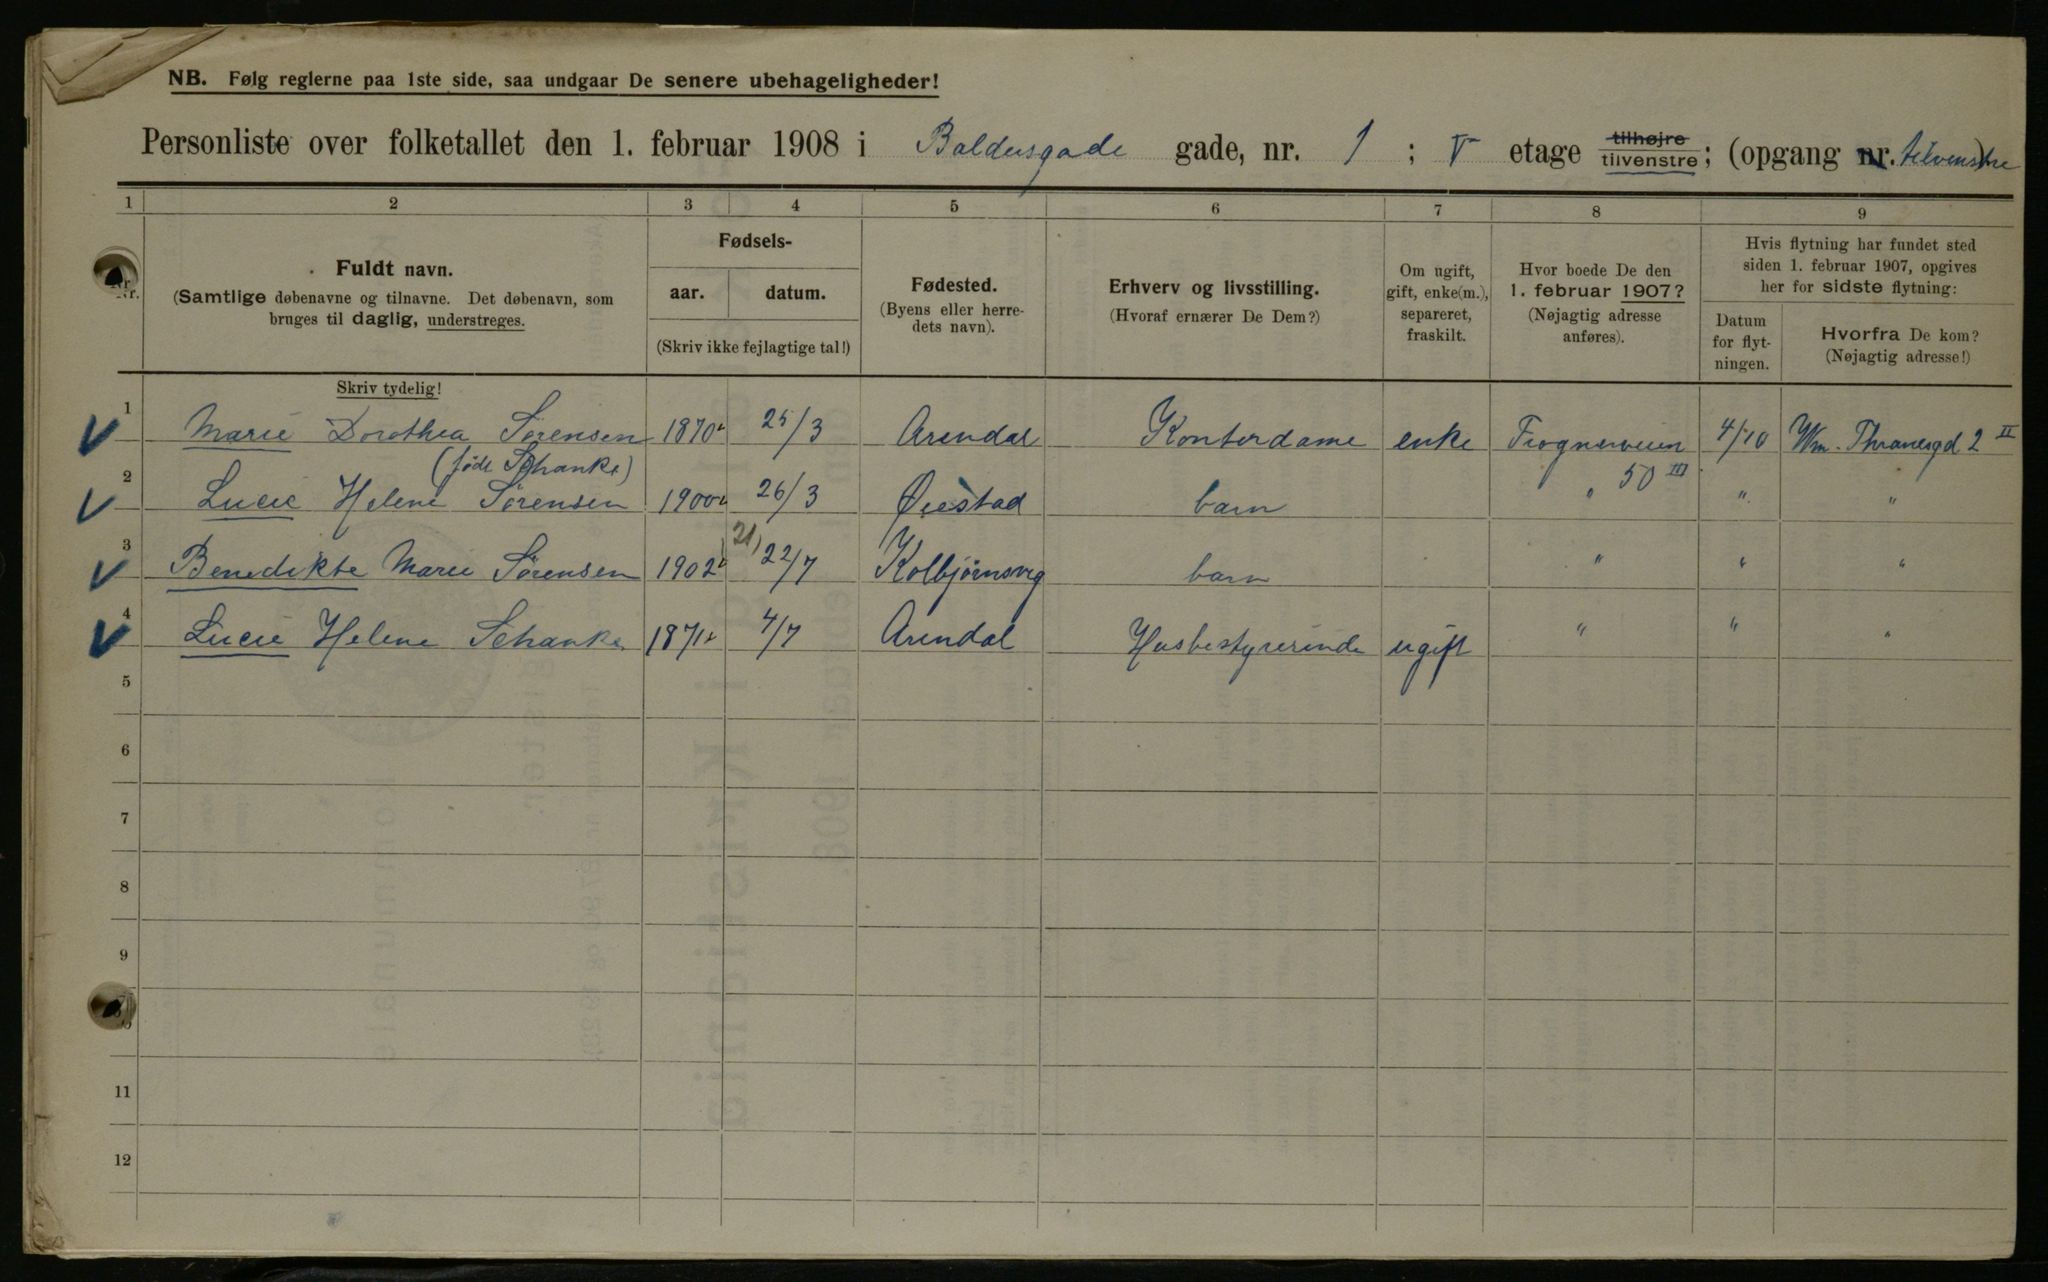 NB. Følg reglerne paa 1ste side, saa undgaar De senere ubehageligheder!
Personliste over folketallet den 1. februar 1908 i Baldersgade gade, nr. 1 ; V etage tilhøjre tilvenstre; (opgang nr. tilvenstre)
1 2 3 4 5 6 7 8 9
Nr.
Fuldt navn.
(Samtlige døbenavne og tilnavne. Det døbenavn, som
bruges til daglig, understreges.
Fødsels-
aar. datum.
(Skriv ikke fejlagtige tal!)
Fødested.
(Byens eller herre-
dets navn).
Erhverv og livsstilling.
(Hvoraf ernærer De Dem?)
Om ugift,
gift, enke(m.),
separeret,
fraskilt.
Hvor boede De den
1. februar 1907?
(Nøjagtig adresse
anføres).
Hvis flytning har fundet sted
siden 1. februar 1907, opgives
her for sidste flytning:
Datum
for flyt-
ningen.
Hvorfra De kom?
(Nøjagtig adresse!)
Skriv tydelig!
1 Marie Dorothea Sørensen 1870 25/3 Arendal Kontordame enke Frognerveien 4/10 Wm. Thranesgd 2 II
(født Schanke) 50 III
2 Lucie Helene Sørensen 1900 26/3 Øiestad barn " " "
21)
3 Benedikte Marie Sørensen 1902 22/7 Kolbjørnsvig barn " " "
4 Lucie Helene Schanke 1871 4/7 Arendal Husbestyrerinde ugift " " "
5
6
7
8
9
11
12